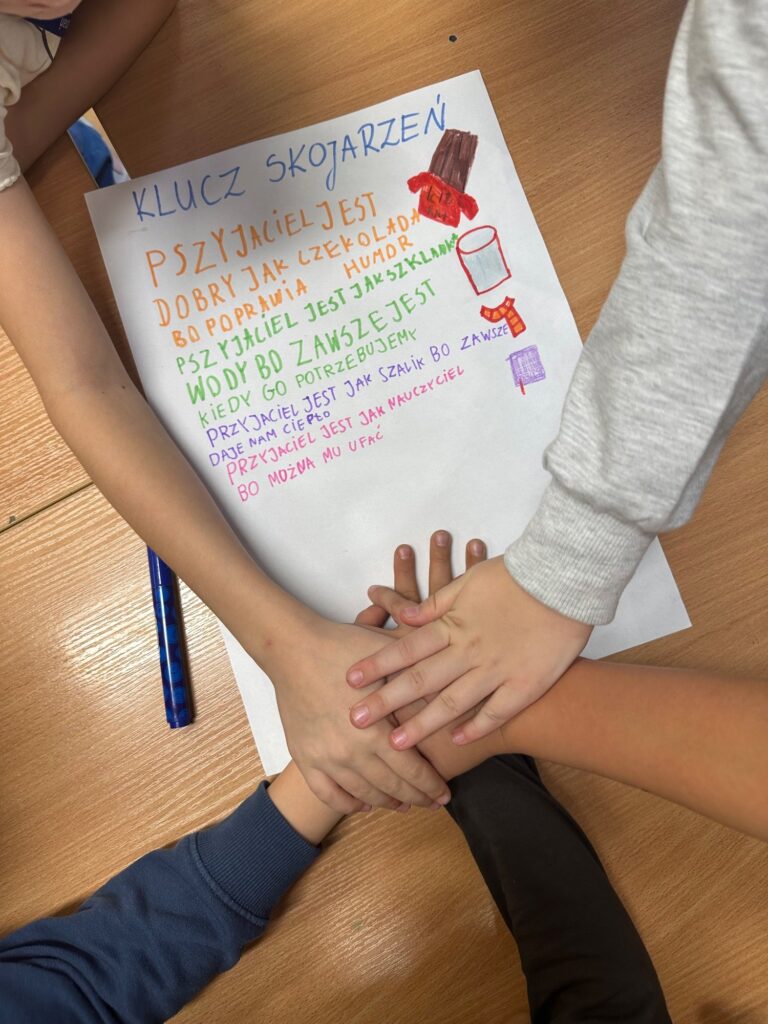 KLUCZ SKOJARZEŃ
PSZYJACIEL JEST
DOBRY JAK CZEKOLADA
BO POPRAWIA HUMOR
PSZYJACIEL JEST JAK SZKLANKA
WODY BO ZAWSZE JEST
KIEDY GO POTRZEBUJEMY
PRZYJACIEL JEST JAK SZALIK BO ZAWSZE
DAJE NAM CIEPŁO
PRZYJACIEL JEST JAK NAUCZYCIEL
BO MOŻNA MU UFAĆ